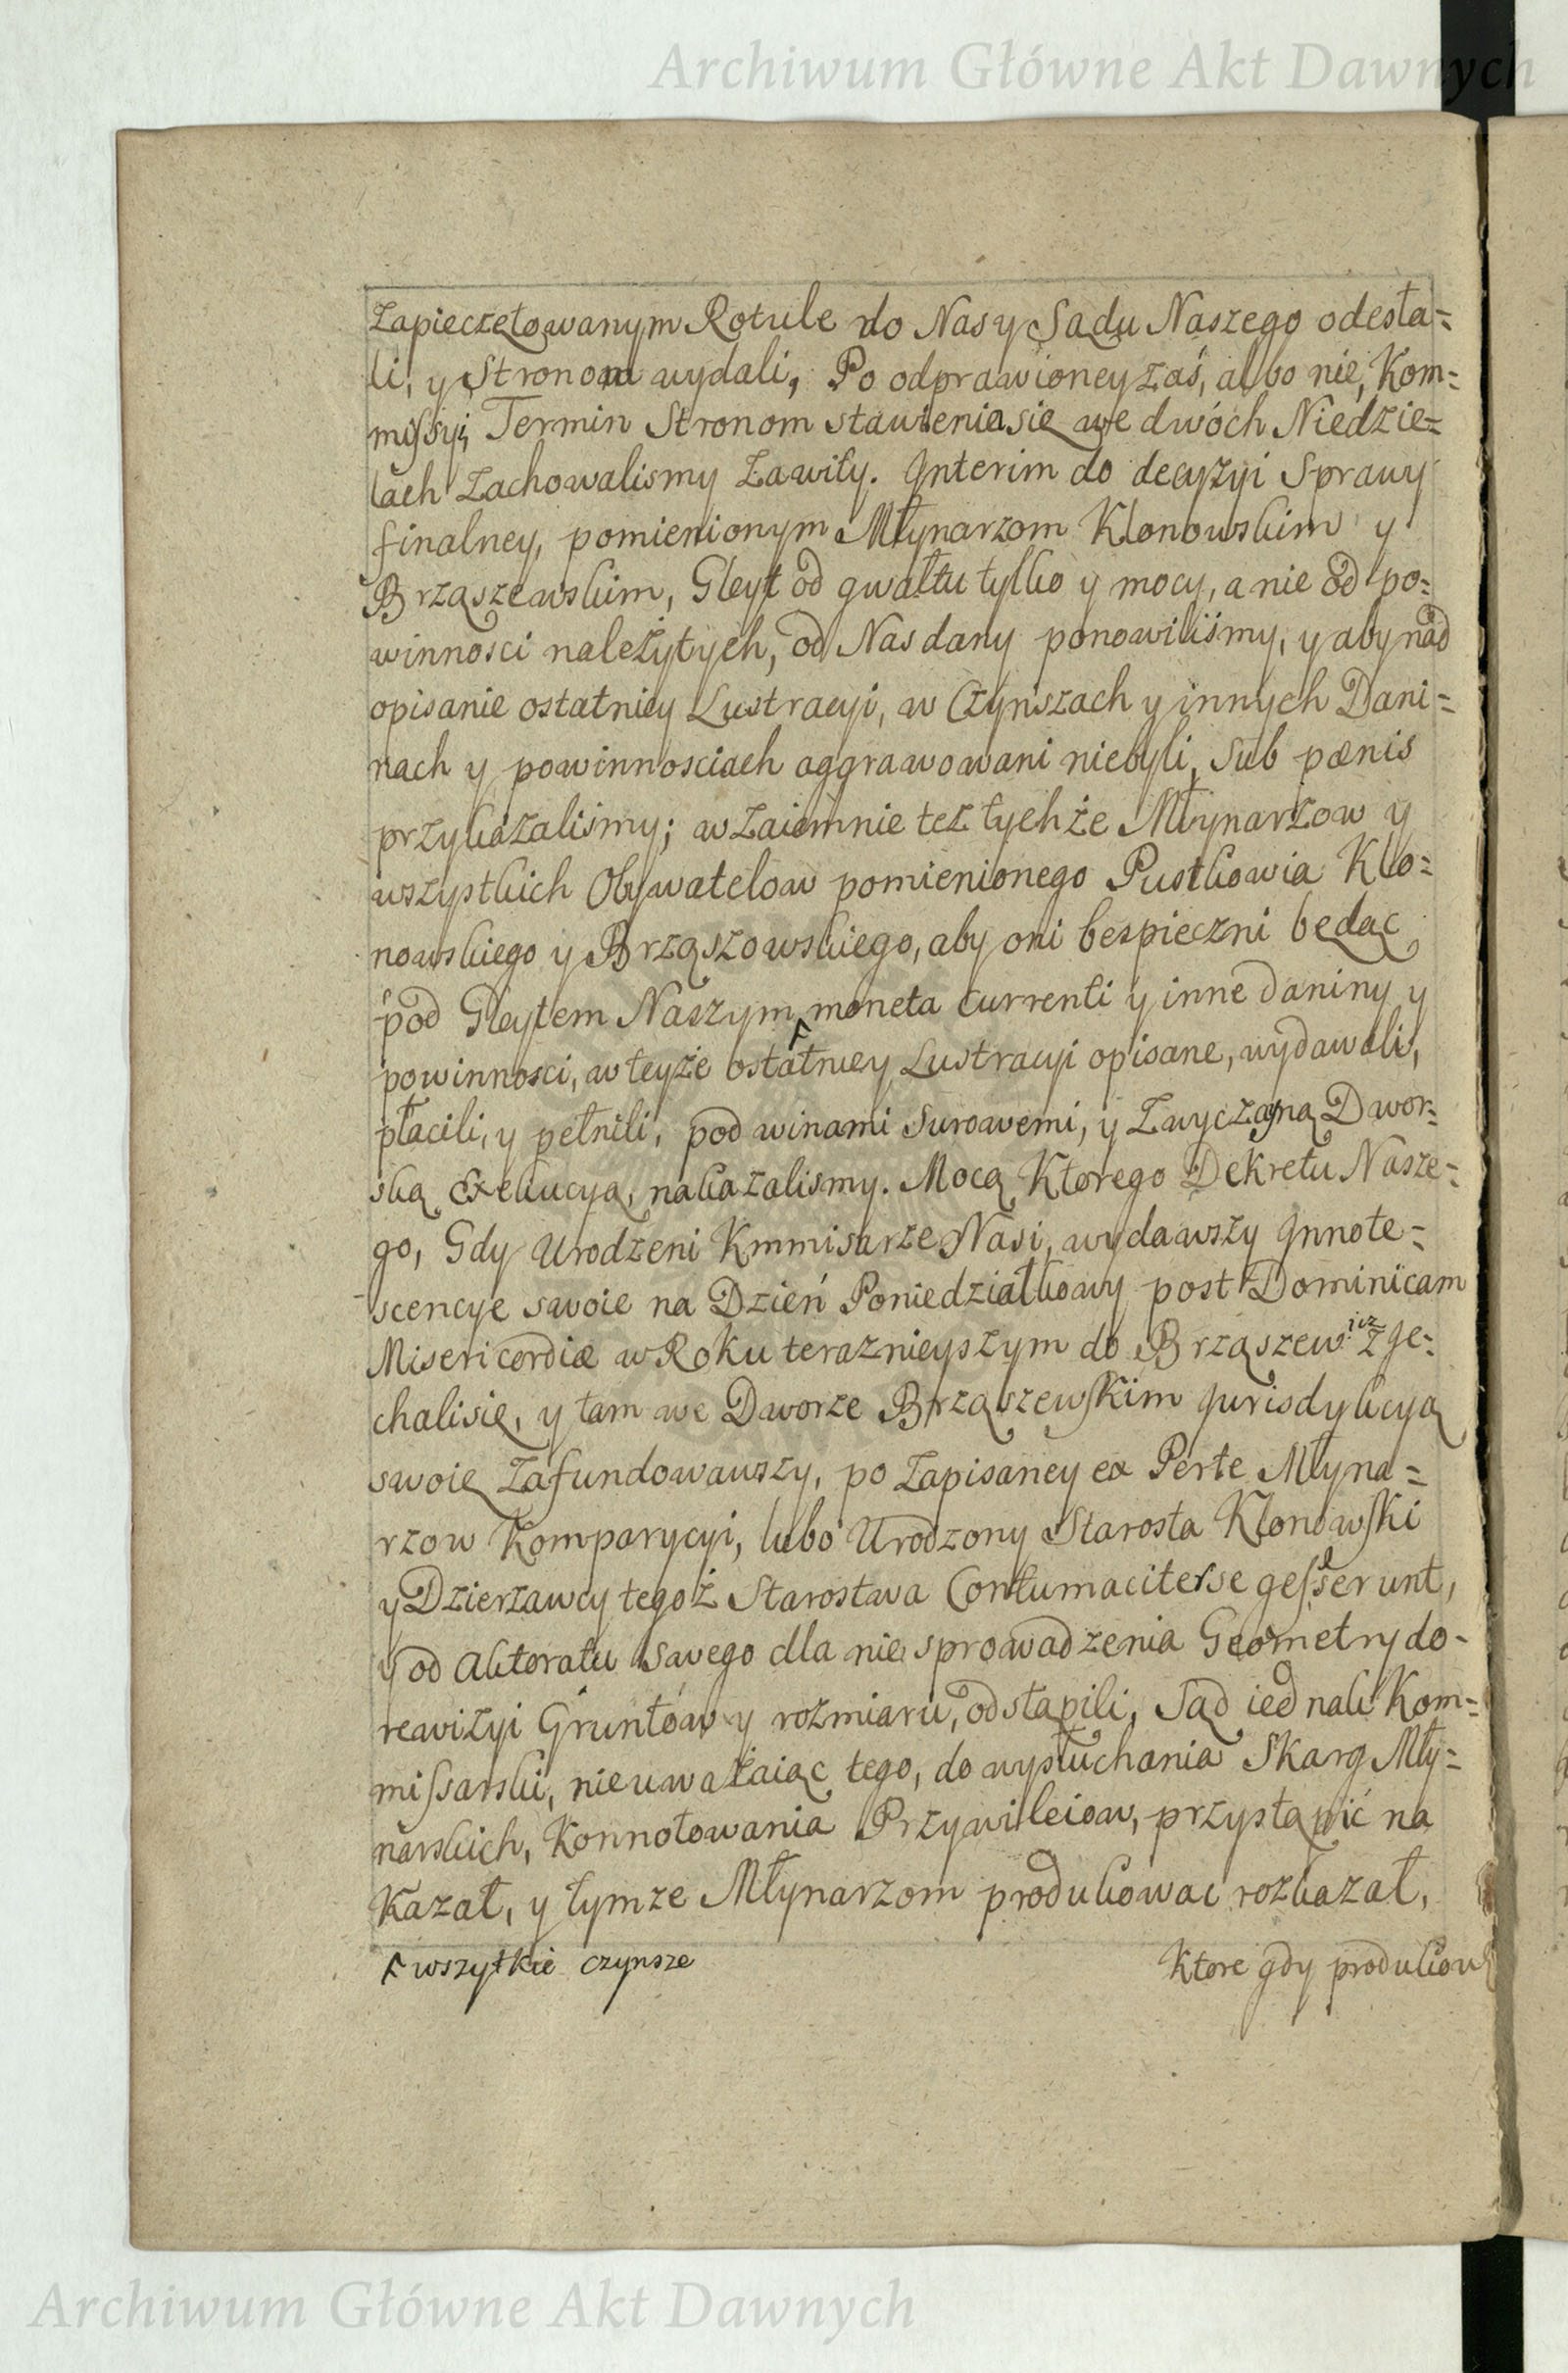 Archiwum Główne Akt Dawnych
Zapieczętowanym Rotule do Nas y Sądu Naszego odesła=
li, y Stronom wydali, Po odprawioney zaś, albo nie, Kom=
missyi, Termin Stronom stawienia się we dwóch Niedzie=
lach zachowalismy zawity. Interim do decyzyi Sprawy
finalney, pomienionym Młynarzom Klonowskim y
Brząszewskim, Gleyt od gwałtu tylko y mocy, a nie od po=
winnosci należytych, od Nas dany ponowiliśmy, y aby nad
opisanie ostatniey Lustracyi, w Czynszach y innych Dani=
nach y powinnosciach aggrawowani niebyli, sub pœnis
przykazaliśmy; wzaiemnie tez tychże Młynarzow y
wszystkich Obywatelow pomienionego Pustkowia Klo=
nowskiego y Brząszowskiego, aby oni bespieczni będąc
pod Gleytem Naszym moneta currenti y inne daniny y
powinnosci, w teyże ostatniey Lustracyi opisane, wydawali,
płacili, y pełnili, pod winami surowemi, y Zwyczayną Dwor=
ską Exekucyą, nakazalismy. Mocą Ktorego Dekretu Nasze=
go, Gdy Urodzeni Kmmisarze Nasi, wydawszy Innote=
scencye swoie na Dzień Poniedziałkowy post Dominicam
Misericordiæ w Roku teraznieyszym do Brząszewicz zje=
chalisię, y tam we Dworze Brząszewskim Jurisdykcyą
swoię zafundowawszy, po zapisaney ex Perte Młyna=
rzow Komparycyi, lubo Urodzony Starosta Klonowski
y Dzierzawcy tegoż Starostwa Contumaciter se gesserunt,
y od Aktoratu swego dla nie sprowadzenia Geometry do-
rewizyi Gruntów y rozmiaru, odstąpili, Sąd iednak Kom=
missarski, nieuważaiąc tego, do wysłuchania Skarg Mły=
narskich, Konnotowania Przywileiow, przystąpić na
Kazał, y tymze Młynarzom produkować rozkazał,
wszytkie czynsze
Ktore gdy produkow
Archiwum Główne Akt Dawnych